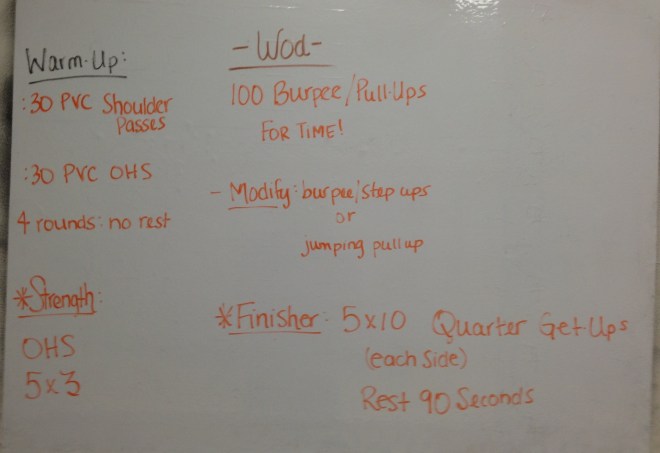 Warm-Up:
:30 PVC Shoulder
Passes
:30 PVC OHS
4 rounds: no rest
*Strength:
OHS
5x3
- Wod -
100 Burpee/Pull-Ups
FOR TIME!
- Modify: burpee/step ups
or
jumping pull up
*Finisher: 5x10 Quarter Get-Ups
(each side)
Rest 90 Seconds